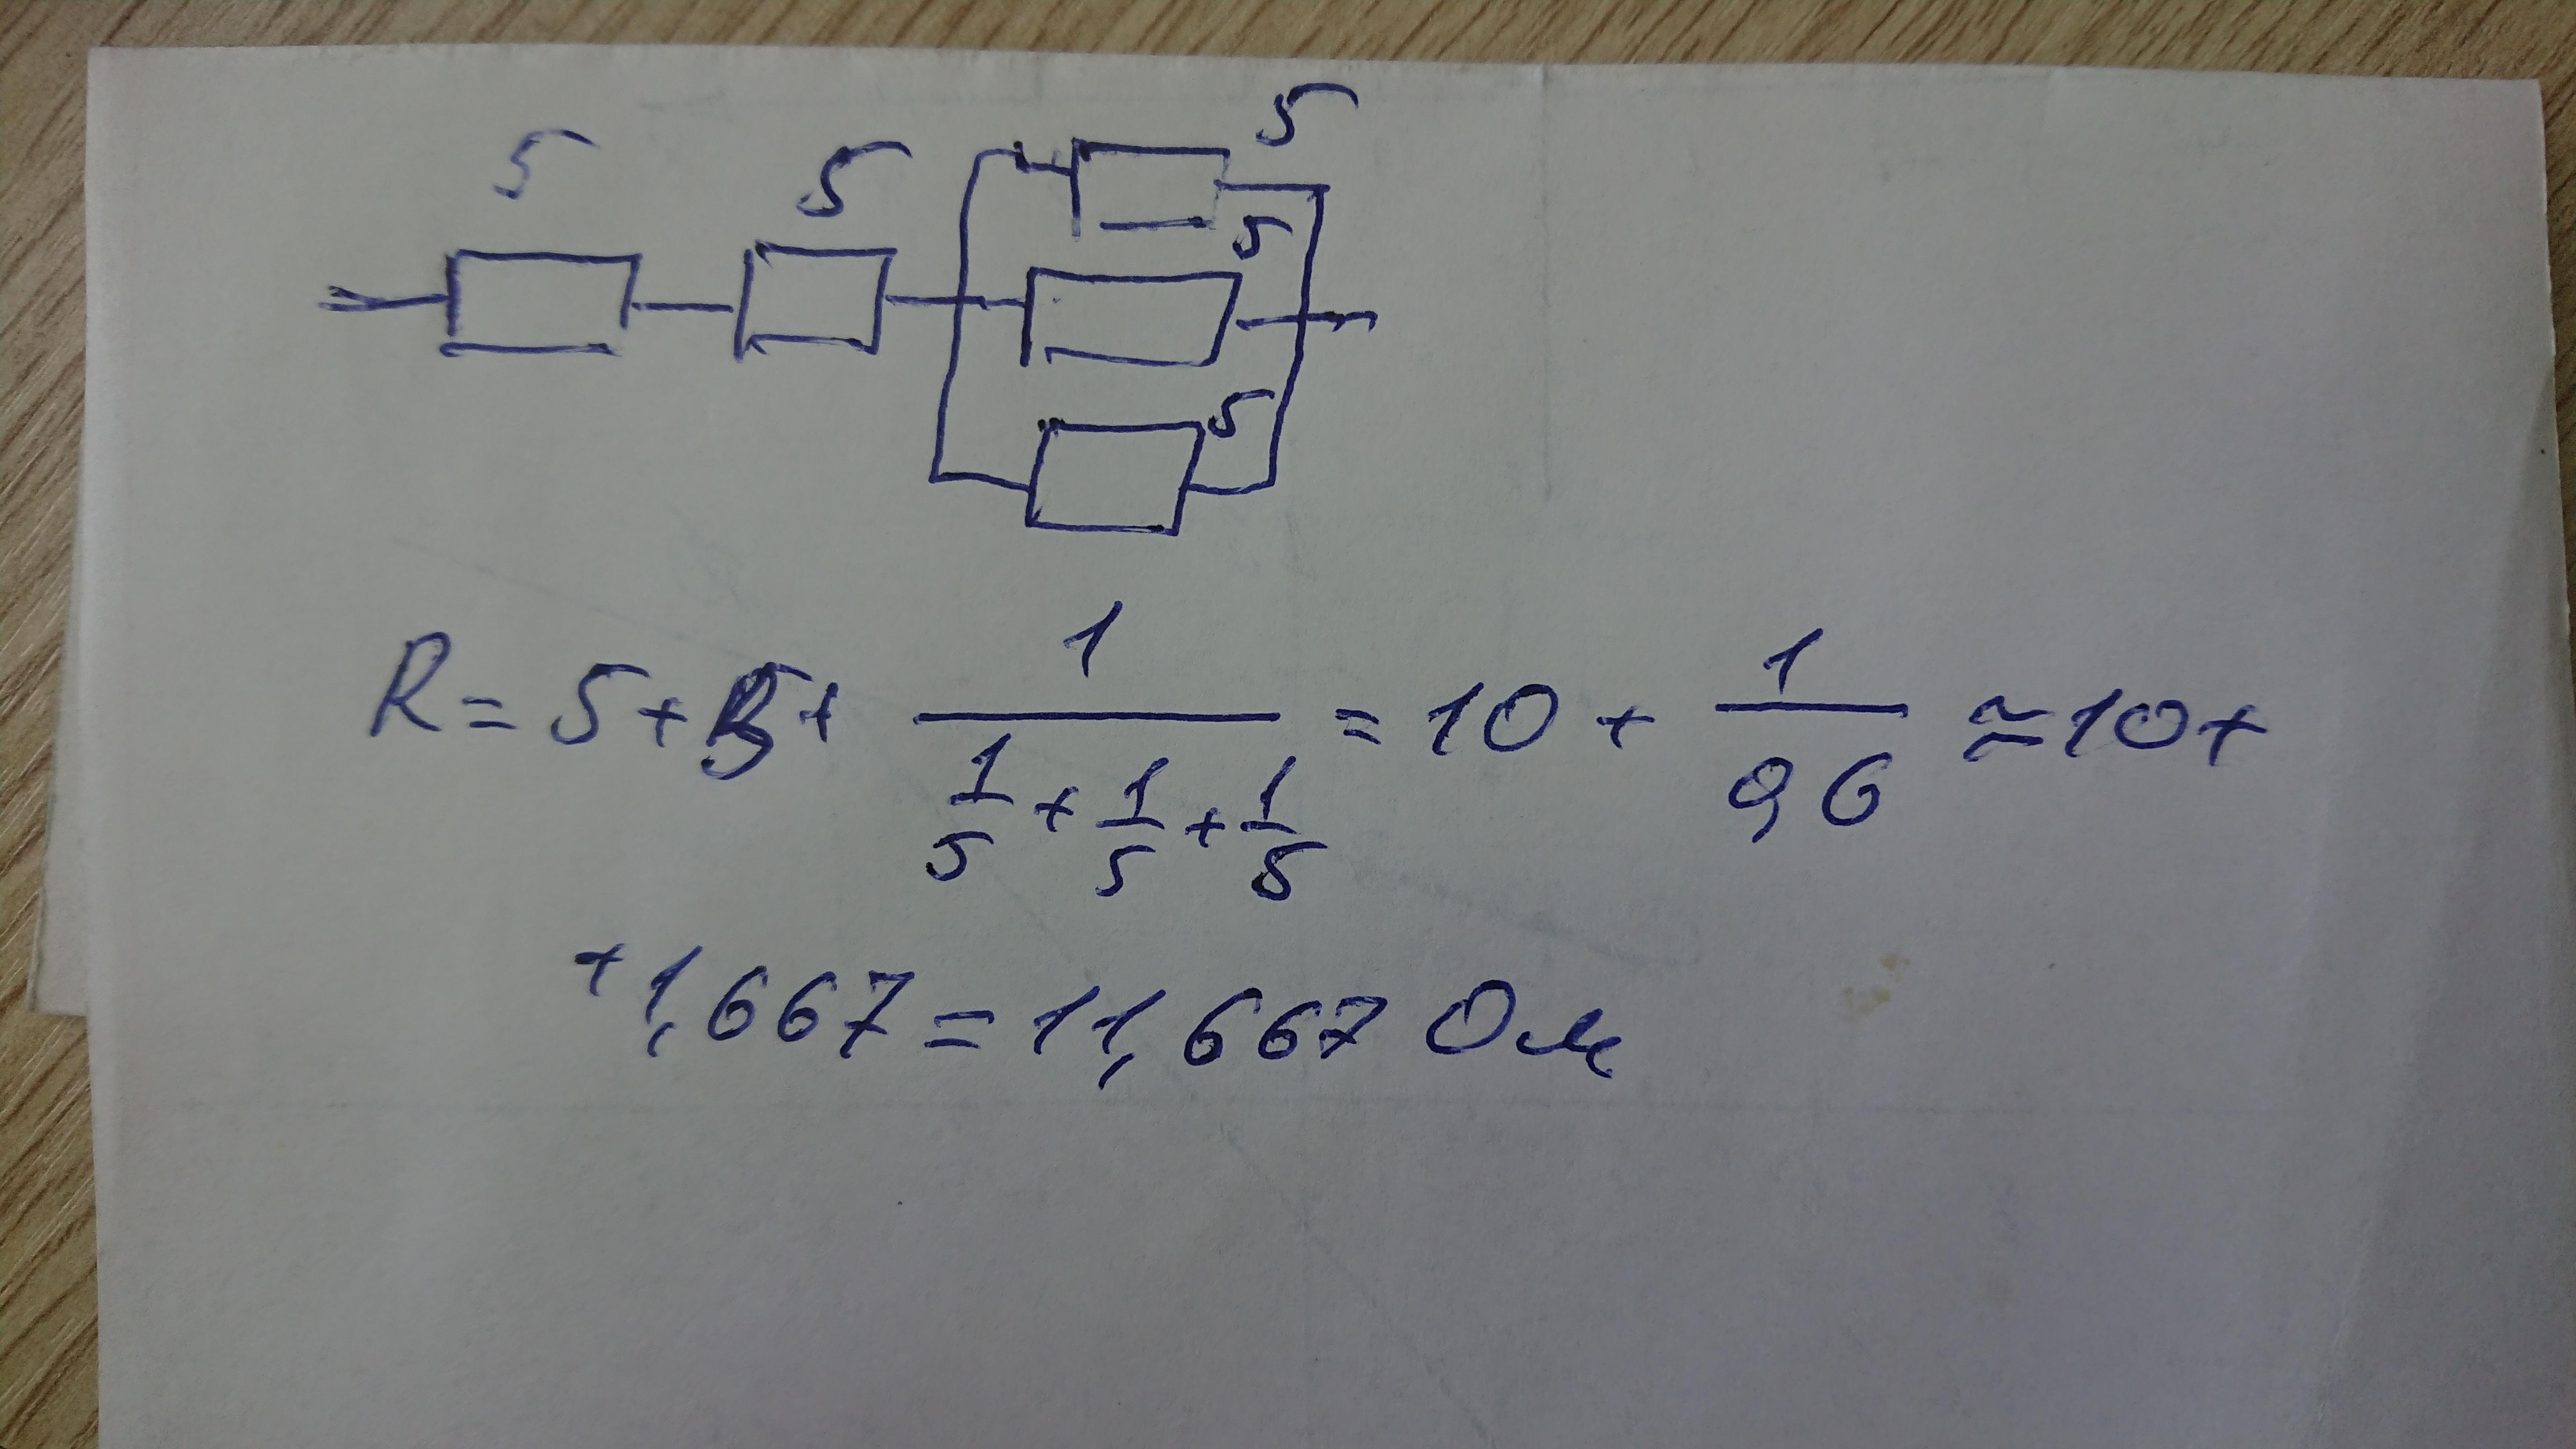 5 5 5
5
5
R = 5 + 5 + 1/(1/5 + 1/5 + 1/5) = 10 + 1/0,6 ≈ 10 +
+ 1,667 = 11,667 Ом